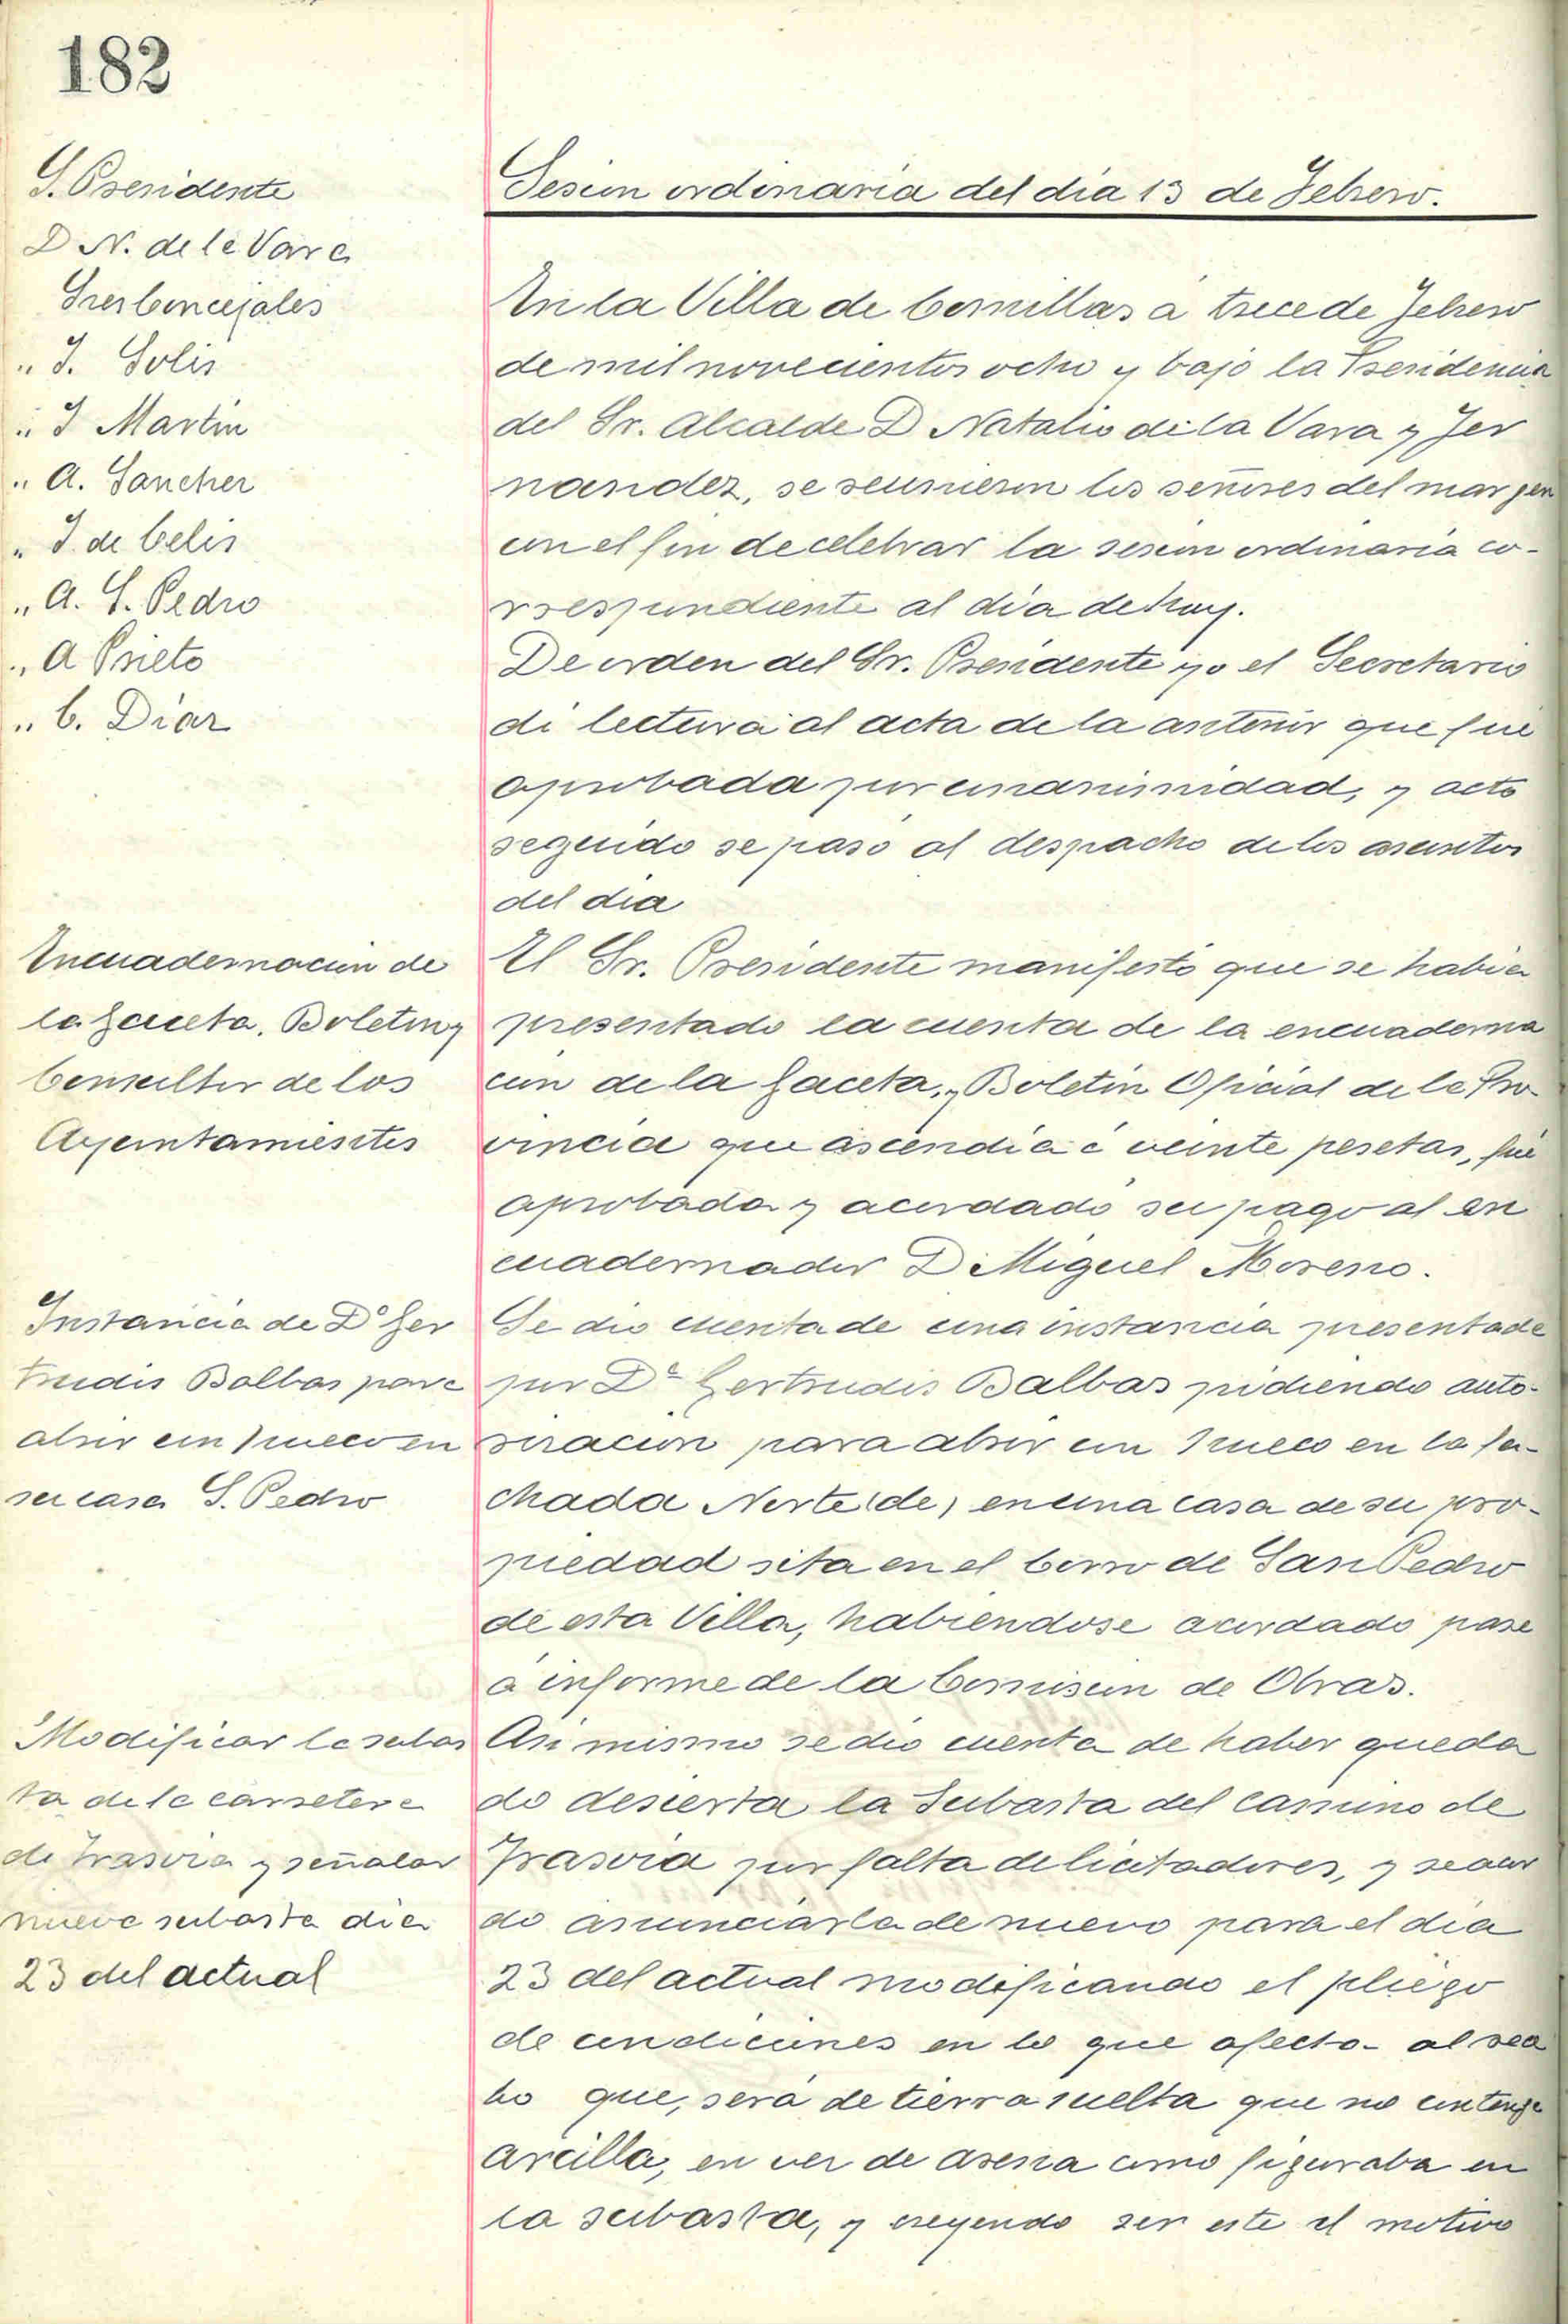 182
S. Presidente
D N. de la Vara
Sres Concejales
" J. Solis
" J Martin
" A. Sanchez
" J. de Celis
" A. S. Pedro
" A Prieto
" C. Diaz
Sesion ordinaria del dia 13 de Febrero.
En la Villa de Comillas á trece de Febrero
de mil novecientos ocho y bajo la Presidencia
del Sr. Alcalde D Natalio de la Vara y Fer
nandez, se reunieron los señores del margen
con el fin de celebrar la sesion ordinaria co-
rrespondiente al dia de hoy.
De orden del Sr. Presidente yo el Secretario
di lectura al acta de la anterior que fué
aprobada por unanimidad, y acto
seguido se pasó al despacho de los asuntos
del dia
Encuadernacion de
la Gaceta, Boletin y
Consultor de los
Ayuntamientos
El Sr. Presidente manifestó que se habia
presentado la cuenta de la encuaderna
cion de la Gaceta, Boletin Oficial de la Pro-
vincia que ascendia á veinte pesetas, fué
aprobada y acordado su pago al en
cuadernador D Miguel Moreno.
Instancia de Dª Ger
trudis Balbas para
abrir un hueco en
su casa S. Pedro
Se dio cuenta de una instancia presentada
por Dª Gertrudis Balbas pidiendo auto-
rizacion para abrir un hueco en la fa-
chada Norte (de) en una casa de su pro-
piedad sita en el Corro de San Pedro
de esta Villa, habiendose acordado pase
á informe de la Comision de Obras.
Modificar la subas
ta de la carretera
de Trasvia y señalar
nueva subasta dia
23 del actual
Asi mismo se dio cuenta de haber queda
do desierta la Subasta del camino de
Trasvia por falta de licitadores, y se acor
do anunciarla de nuevo para el dia
23 del actual modificando el pliego
de condiciones en lo que afecta al rea
bo que, será de tierra suelta que no contenga
arcilla, en vez de arena como figuraba en
la subasta, y creyendo ser este el motivo